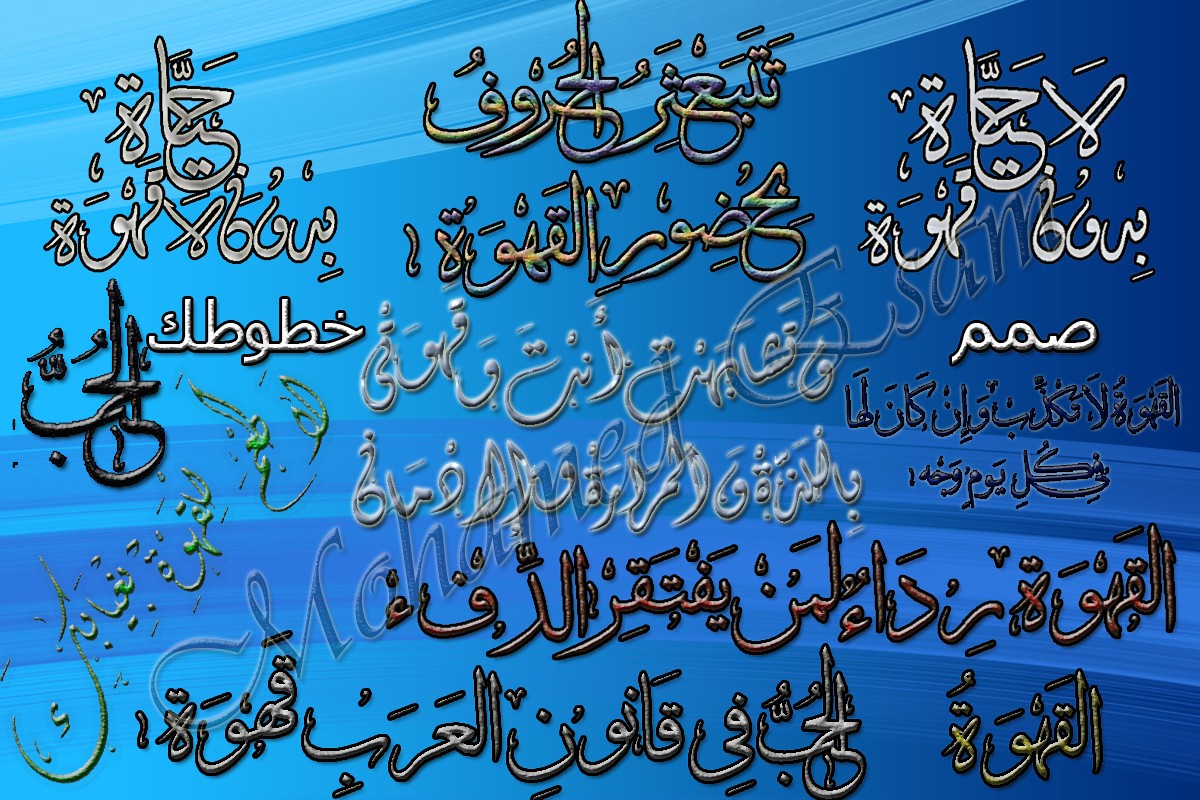 لَا حَيَّاة
بِدُونْ قَهْوَة
تَتَبَعْثَرُ الحُرُوفُ
بِحُضِورِ القَهْوَةِ
حَيَّاة
بِدُونْ لَا قَهْوَة
صمم
خطوطك
الحُبُّ
وَتَشَابَهْتِ أَنْتَ وَقَهْوَتِي
بِاللَّذَّةِ وَالمَرَارَةِ وَالإِدْمَانِ
القَهْوَةُ لَا تَكْذِبْ وَإِنْ كَانَ لَهَا
فِي كُلِ يَومٍ وَجْه
لا طعم
للقهوة بغيابك
القَهْوَة رِدَاءُ لمَنْ يَفْتَقِرِ الدَّفْء
القَهْوَةُ
الحُبُّ فِي قَانُونِ العَرَبِ قَهْوَة
Mohamed Esam